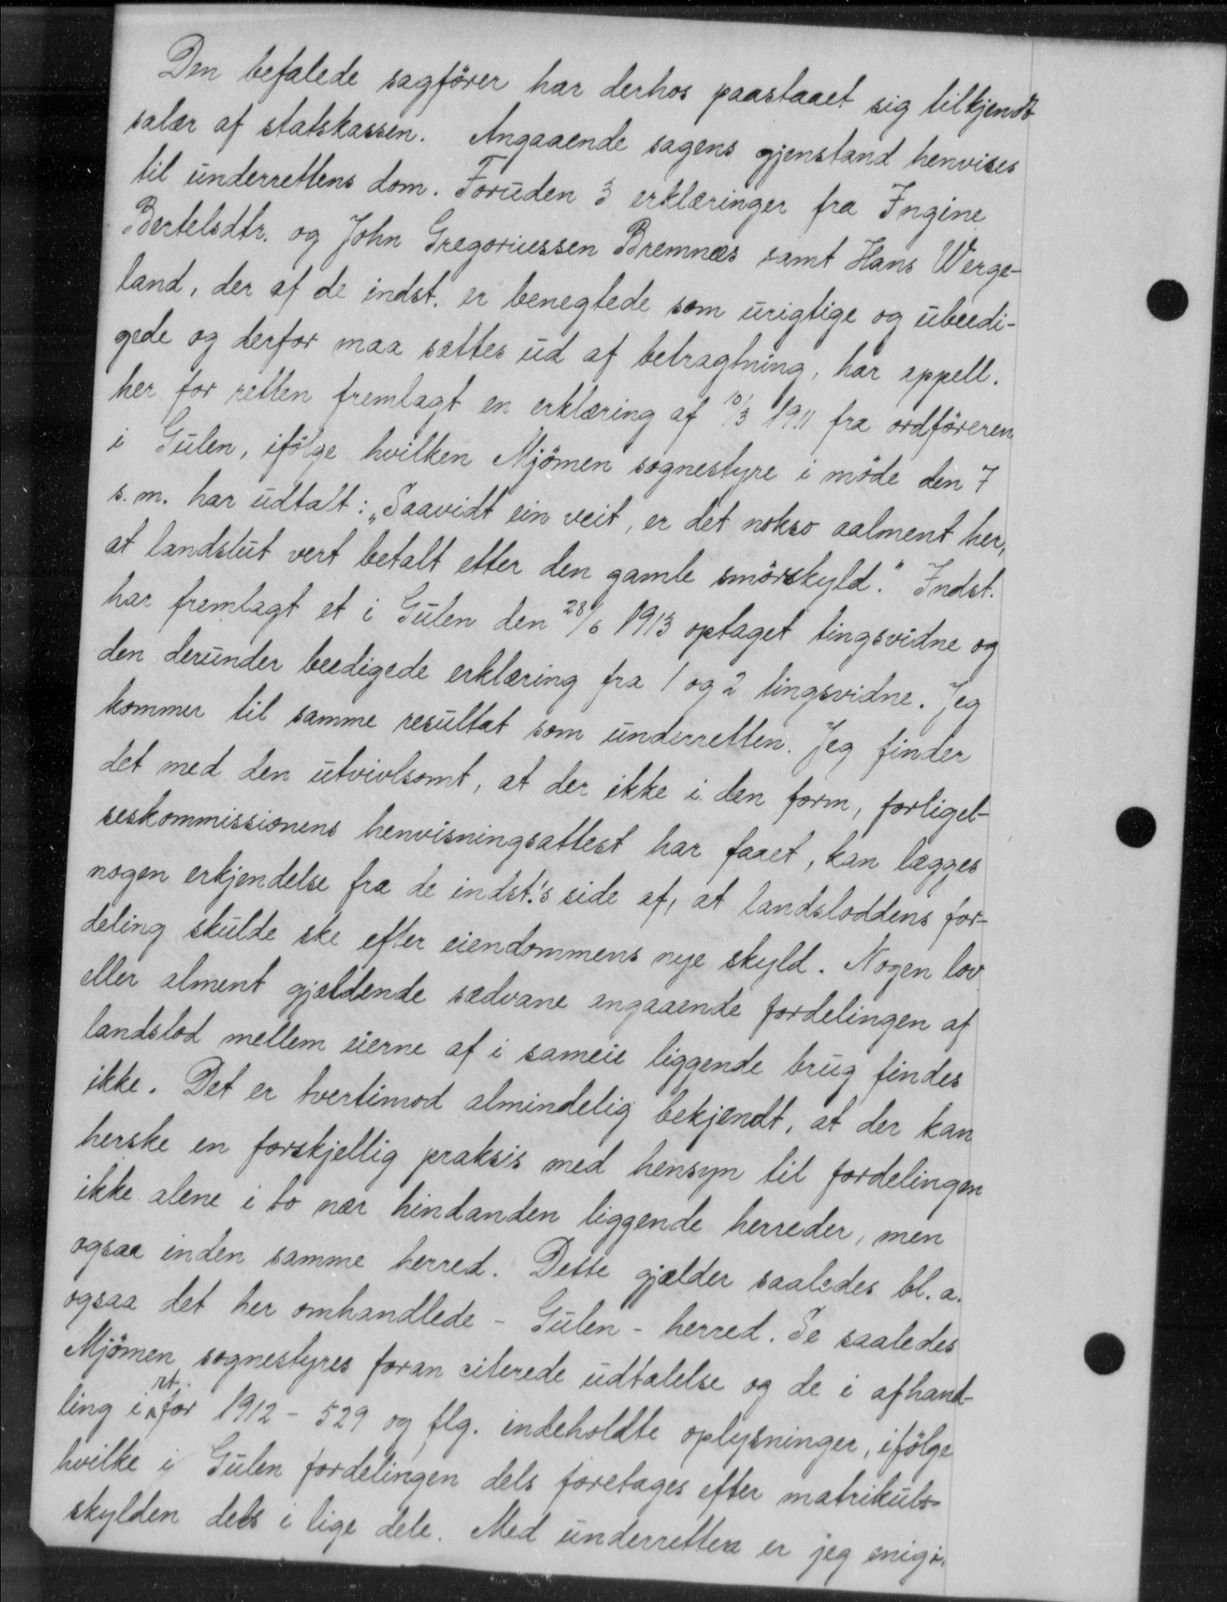 Den befalede sagfører har derhos paastaaet sig tilkjendt
salær af statskassen. Angaaende sagens gjenstand henvises
til underrettens dom. Foruden 3 erklæringer fra Ingine
Bertelsdtr. og John Gregoriussen Bremnæs samt Hans Werge-
land, der af de indst. er benegtede som urigtige og ubeedi-
gede og derfor maa sættes ud af betragtning, har appell.
her for retten fremlagt en erklæring af 10/3 1911 fra ordføreren
i Gulen, ifølge hvilken Mjömen sognestyre i møde den 7
s. m. har udtalt: „Saavidt ein veit, er det nokso aalment her,
at landslut vert betalt etter den gamle smörskyld." Indst.
har fremlagt et i Gulen den 28/6 1913 optaget tingsvidne og
den derunder beedigede erklæring fra 1 og 2 tingsvidne. Jeg
kommer til samme resultat som underretten. Jeg finder
det med den utvivlsomt, at der ikke i den form, forligel-
seskommissionens henvisningsattest har faaet, kan lægges
nogen erkjendelse fra de indst.'s side af, at landsloddens for-
deling skulde ske efter eiendommens nye skyld. Nogen lov
eller alment gjældende sædvane angaaende fordelingen af
landslod mellem eierne af i sameie liggende brug findes
ikke. Det er tvertimod almindelig bekjendt, at der kan
herske en forskjellig praksis med hensyn til fordelingen
ikke alene i to nær hindanden liggende herreder, men
ogsaa inden samme herred. Dette gjælder saaledes bl. a.
ogsaa det her omhandlede - Gulen - herred. Se saaledes
Mjömen sognestyres foran citerede udtalelse og de i afhand-
ling i rt. for 1912 - 529 og flg. indeholdte oplysninger, ifølge
hvilke i Gulen fordelingen dels foretages efter matrikuls-
skylden dels i lige dele. Med underretten er jeg enig i,